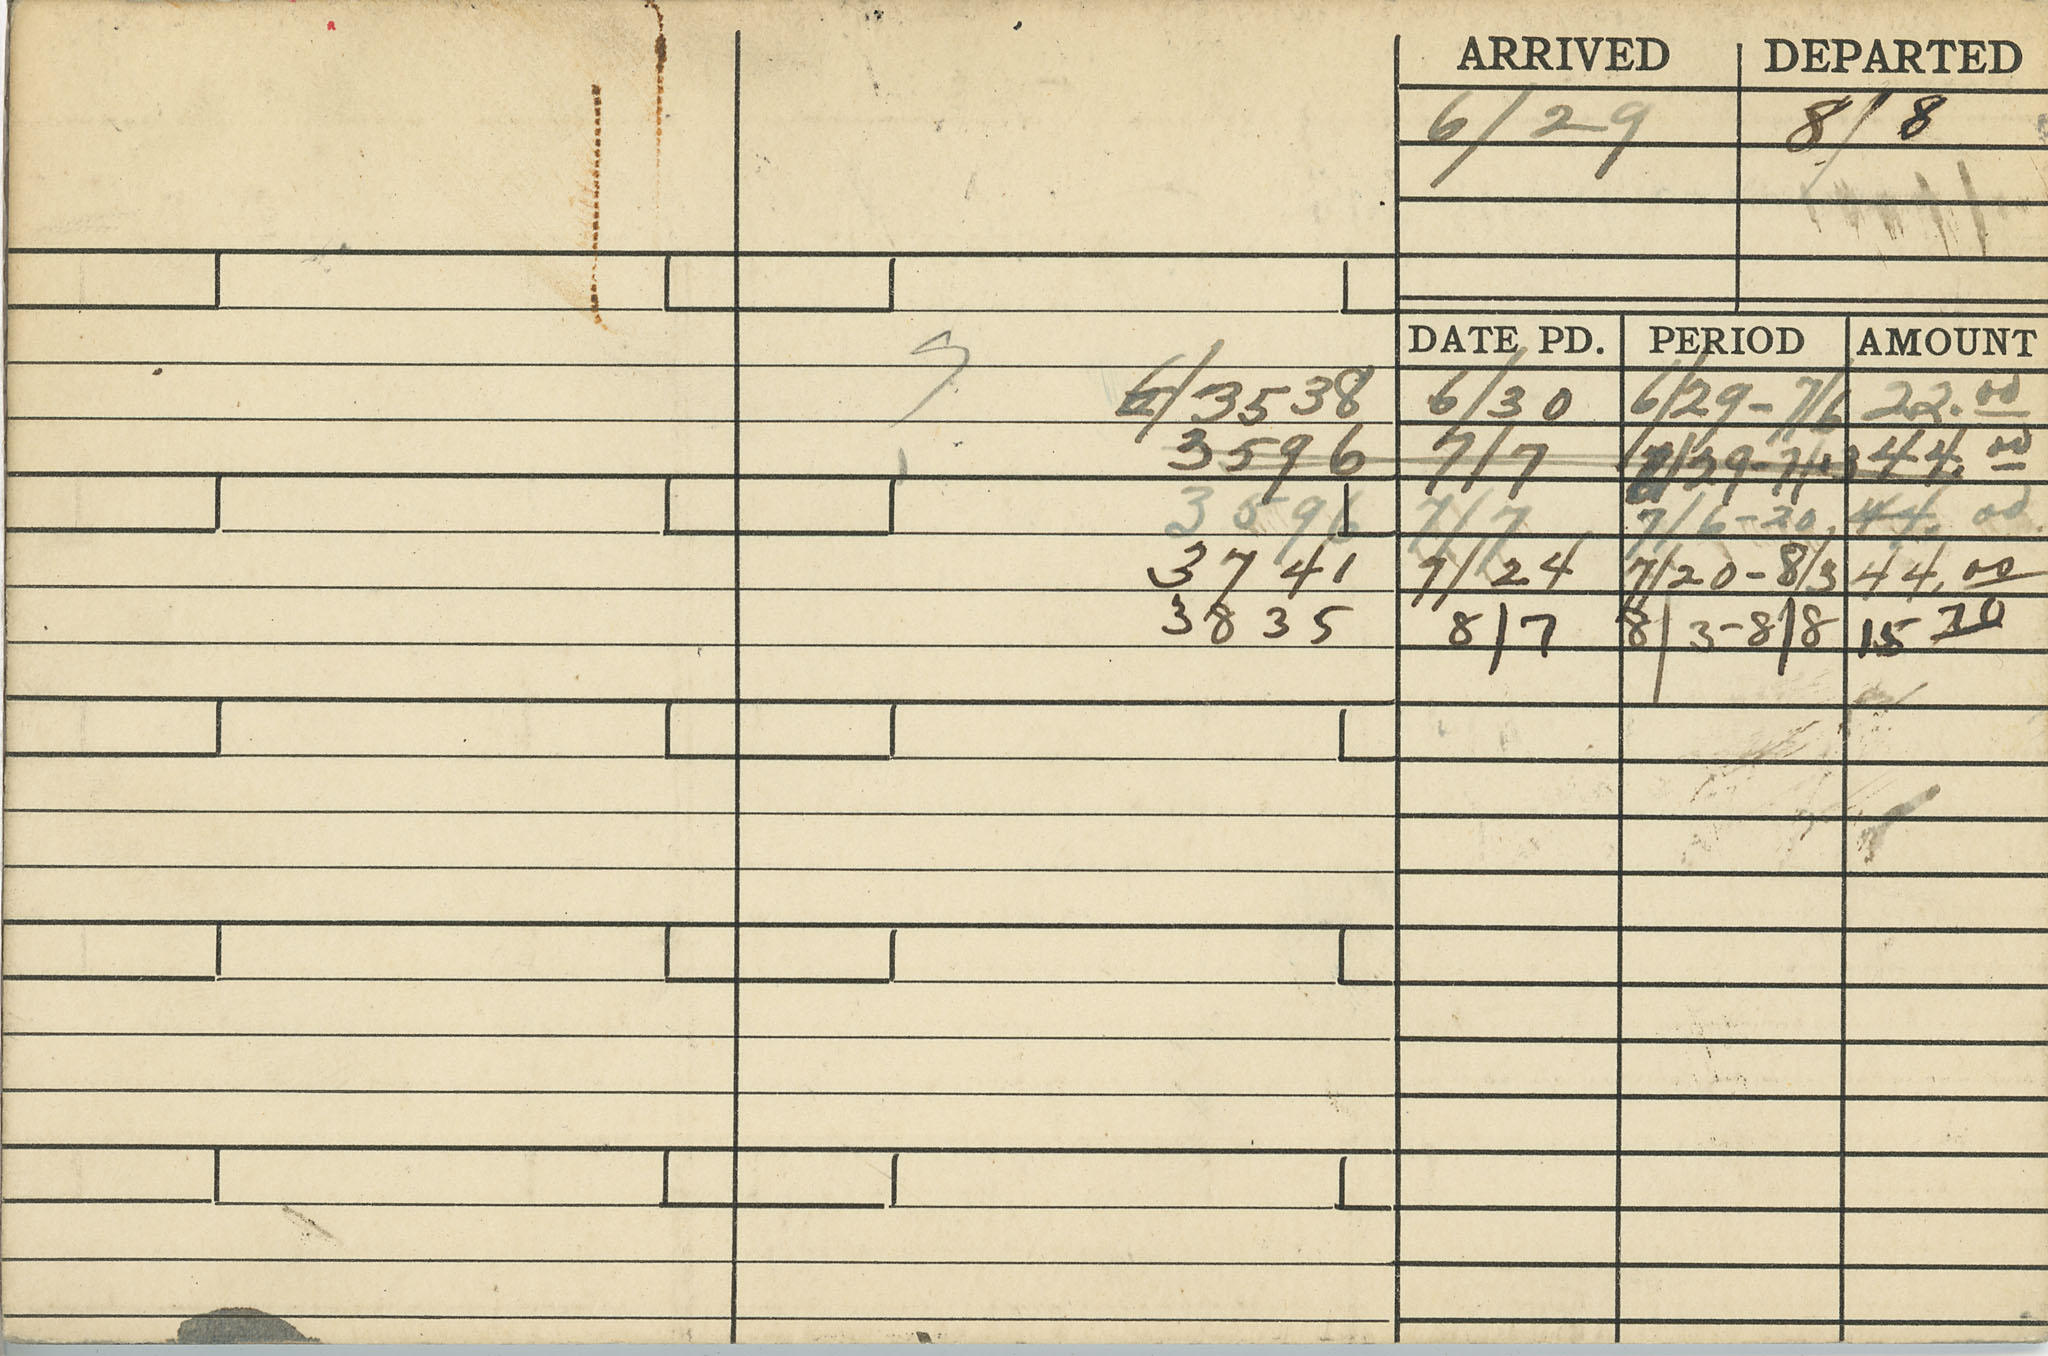 ARRIVED DEPARTED
6/29 8/8
DATE PD. PERIOD AMOUNT
3538 6/30 6/29-7/6 22.00
3596 7/7 44.00
3596 7/7 7/6-20. 44.00
3741 7/24 7/20-8/3 44.00
3835 8/7 8/3-8/8 15 70